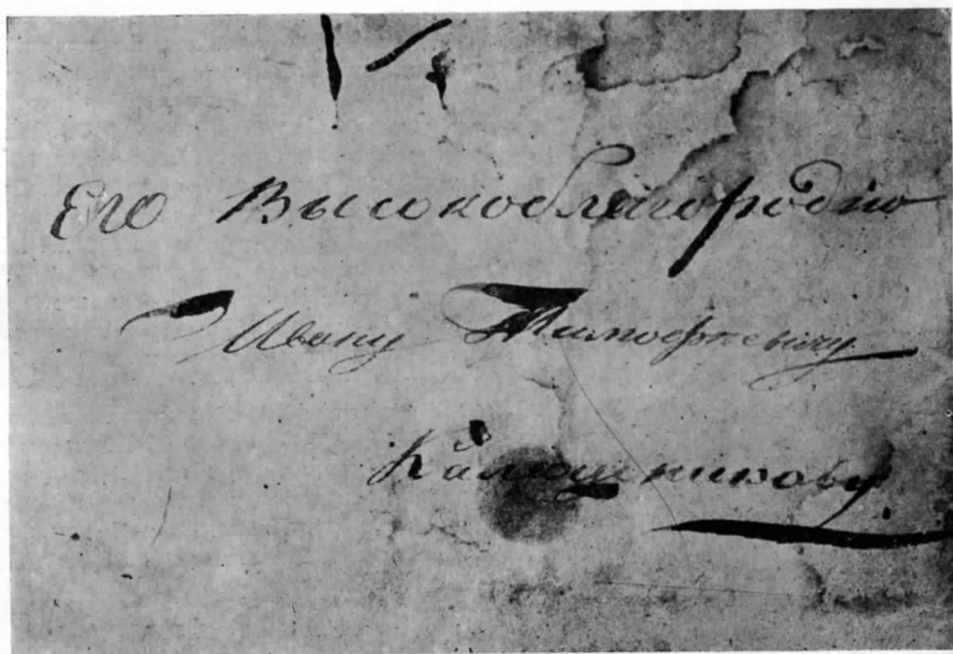 Его Высокоблагородію
Ивану Тимофѣевичу
Калашникову